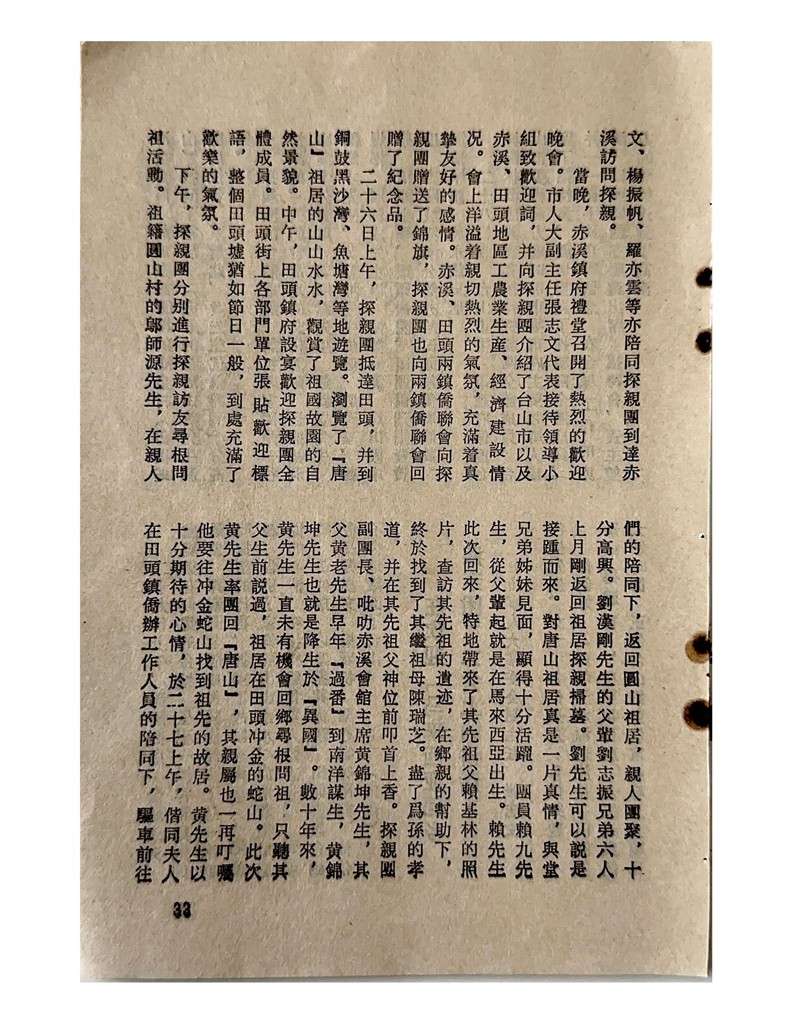 文、楊振帆、羅亦雲等亦陪同探親團到達赤
溪訪問探親。
當晚，赤溪鎮府禮堂召開了熱烈的歡迎
晚會。市人大副主任張志文代表接待領導小
組致歡迎詞，并向探親團介紹了台山市以及
赤溪、田頭地區工農業生産、經濟建設情
况。會上洋溢着親切熱烈的氣氛，充滿着真
摯友好的感情。赤溪、田頭兩鎮僑聯會向探
親團贈送了錦旗，探親團也向兩鎮僑聯會回
贈了紀念品。
二十六日上午，探親團抵達田頭，并到
銅鼓黑沙灣、魚塘灣等地遊覽。瀏覽了『唐
山』祖居的山山水水，觀賞了祖國故園的自
然景貌。中午，田頭鎮府設宴歡迎探親團全
體成員。田頭街上各部門單位張貼歡迎標
語，整個田頭墟猶如節日一般，到處充滿了
歡樂的氣氛。
下午，探親團分别進行探親訪友尋根問
祖活動。祖籍圓山村的鄔師源先生，在親人
們的陪同下，返回圓山祖居，親人團聚，十
分高興。劉漢剛先生的父輩劉志振兄弟六人
上月剛返回祖居探親掃墓。劉先生可以説是
接踵而來。對唐山祖居真是一片真情，與堂
兄弟姊妹見面，顯得十分活躍。團員賴九先
生，從父輩起就是在馬來西亞出生。賴先生
此次回來，特地帶來了其先祖父賴基林的照
片，查訪其先祖的遺迹，在鄉親的幫助下，
終於找到了其繼祖母陳瑞芝。盡了爲孫的孝
道，并在其先祖父神位前叩首上香。探親團
副團長、吡叻赤溪會館主席黄錦坤先生，其
父黄老先生早年『過番』到南洋謀生，黄錦
坤先生也就是降生於『異國』。數十年來，
黄先生一直未有機會回鄉尋根問祖，只聽其
父生前説過，祖居在田頭冲金的蛇山。此次
黄先生率團回『唐山』，其親屬也一再叮囑
他要往冲金蛇山找到祖先的故居。黄先生以
十分期待的心情，於二十七上午，偕同夫人
在田頭鎮僑辦工作人員的陪同下，驅車前往
33